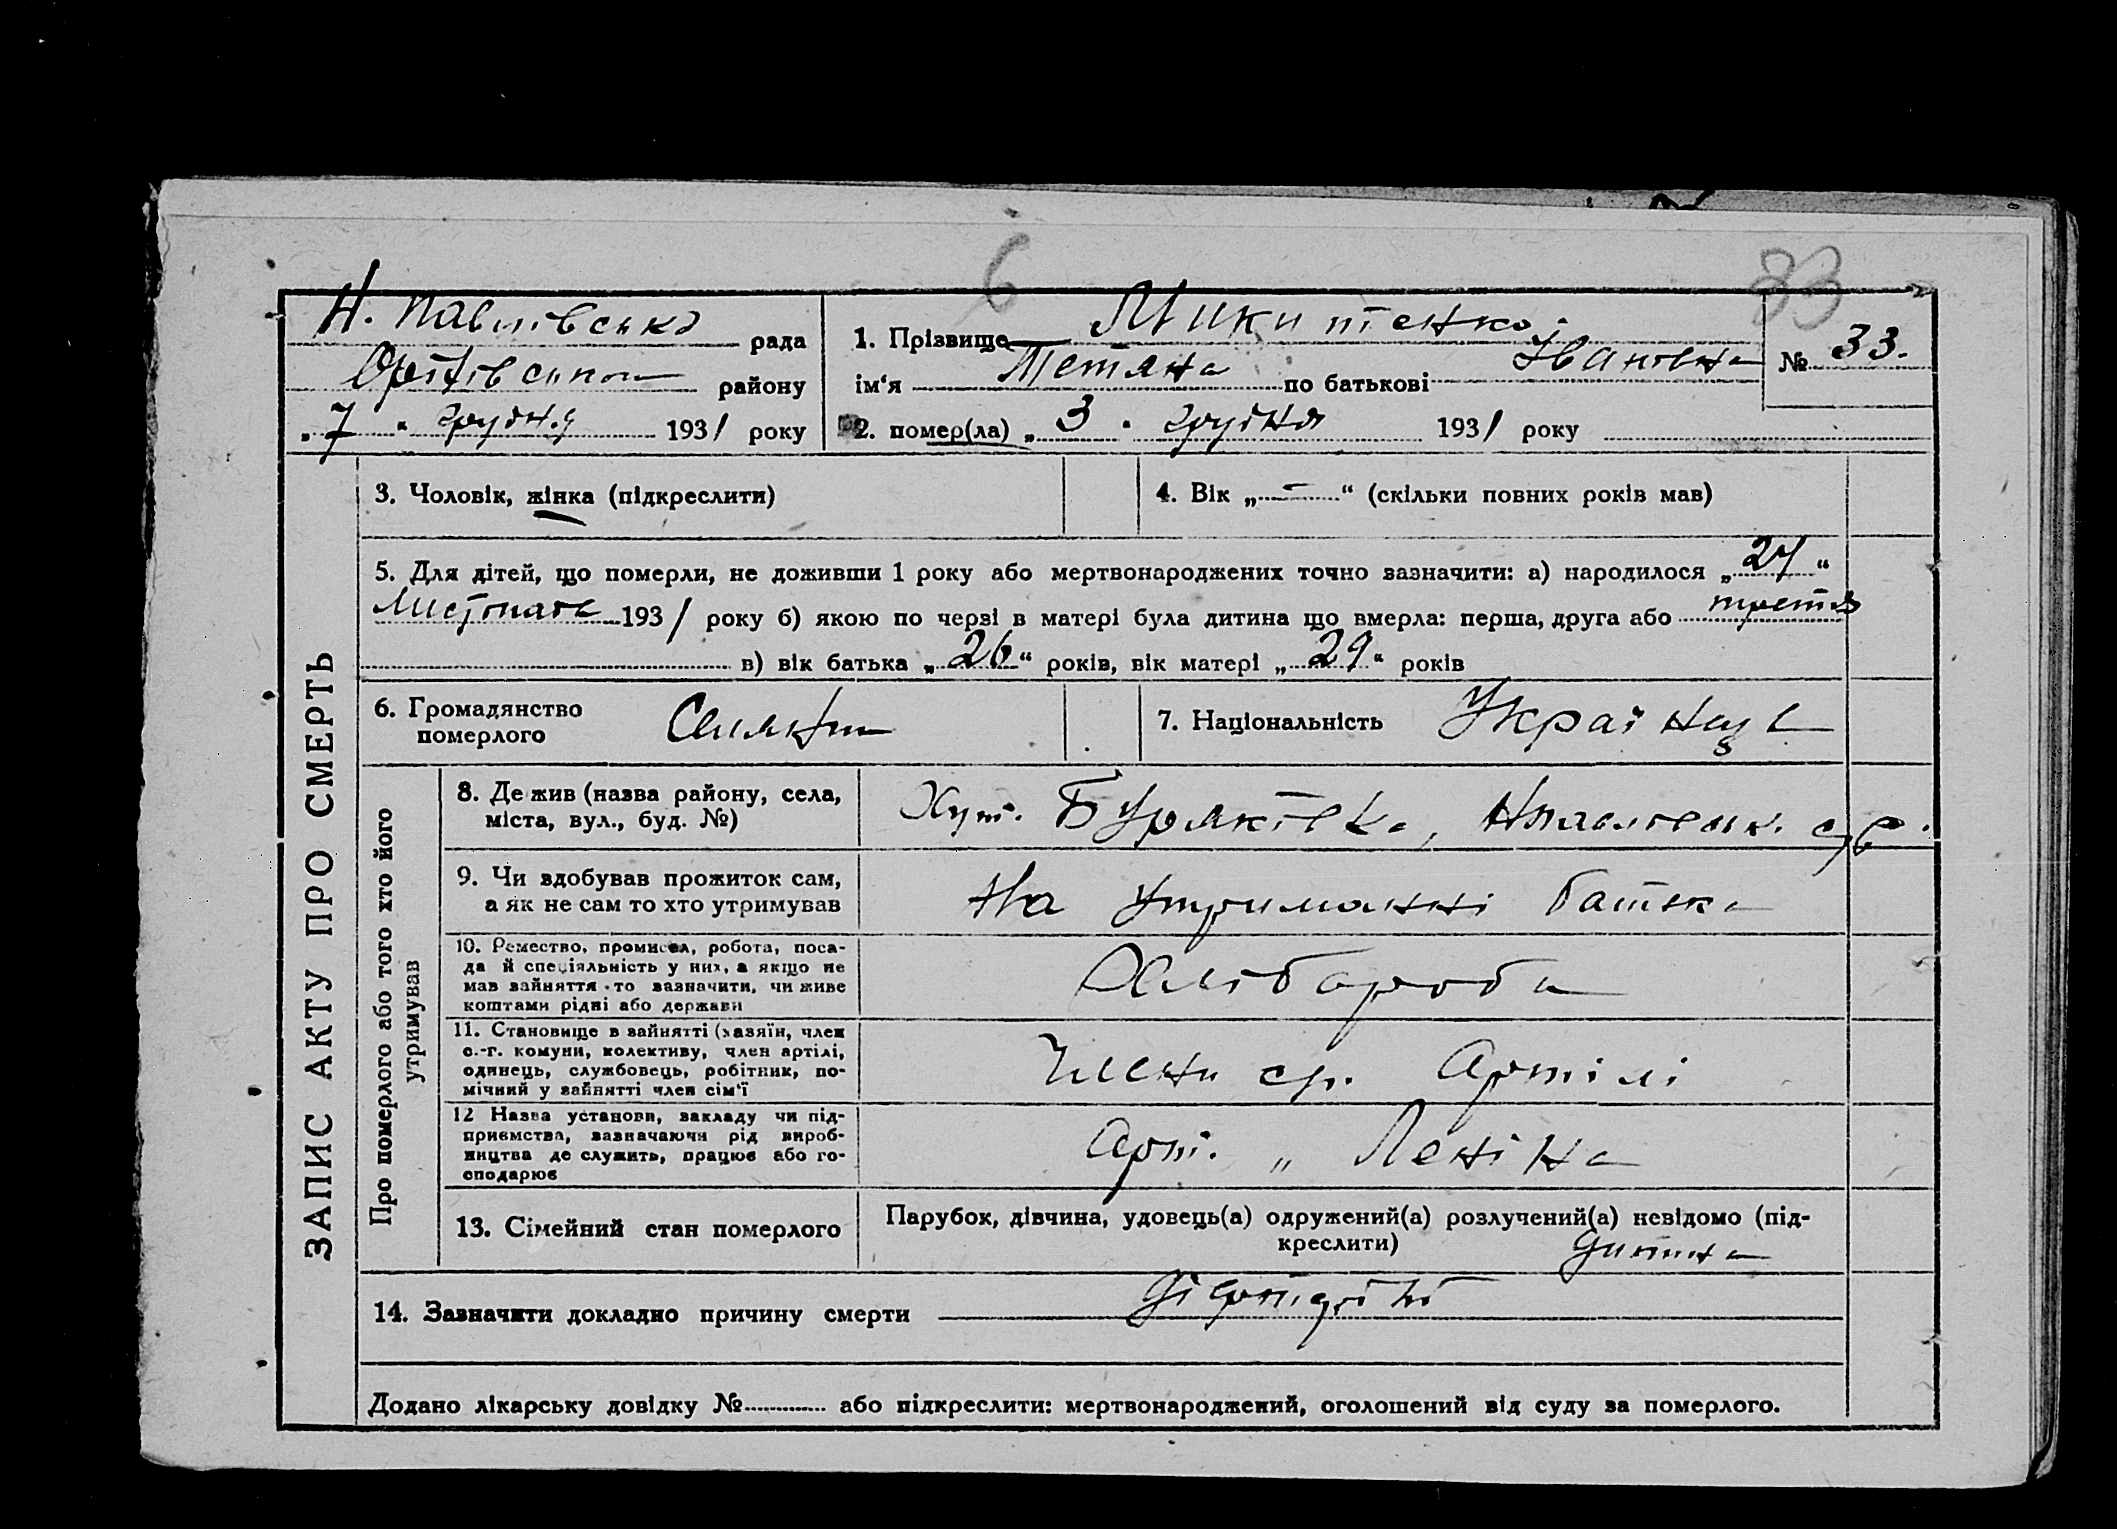 6 33
Н. Павлівська рада
Оріхівського району
„ 7 " грудня 1931 року
1. Прізвище Микитенко
ім‘я Тетяна по батькові Івановна
№ 33.
2. помер(ла) „ 3 " грудня 1931 року
ЗАПИС АКТУ ПРО СМЕРТЬ
3. Чоловік, жінка (підкреслити)
4. Вік „ – “ (скільки повних років мав)
5. Для дітей, що померли, не доживши 1 року або мертвонароджених точно зазначити: а) народилося „ 24 “
Листопада 1931 року б) якою по черзі в матері була дитина що вмерла: перша, друга або третя
в) вік батька „ 26 “ років, вік матері „ 29 “ років
6. Громадянство
померлого
7. Національність Українца
Про померлого або того хто його
утримував
8. Де жив (назва району, села,
міста, вул., буд. №)
Хут. Буряківка, Нпавлівськ. с/р.
9. Чи здобував прожиток сам,
а як не сам то хто утримував
На утриманні батька
10. Ремество, промисел, робота, поса-
да й спеціяльність у них, а якщо не
мав зайняття - то зазначити, чи живе
коштами рідні або держави
Хлібороба
11. Становище в зайнятті (хазяїн, член
с.-г. комуни, колективу, член артілі,
одинець, службовець, робітник, по-
мічний у зайнятті член сім‘ї
Члени ср. Артілі
12 Назва установи, закладу чи під-
приємства, зазначаючи рід вироб-
ництва де служить, працює або го-
сподарює
Арт. „ Леніна
13. Сімейний стан померлого
Парубок, дівчина, удовець(а) одружений(а) розлучений(а) невідомо (під-
креслити) дитина
14. Зазначити докладно причину смерти
Додано лікарську довідку № або підкреслити: мертвонароджений, оголошений від суду за померлого.